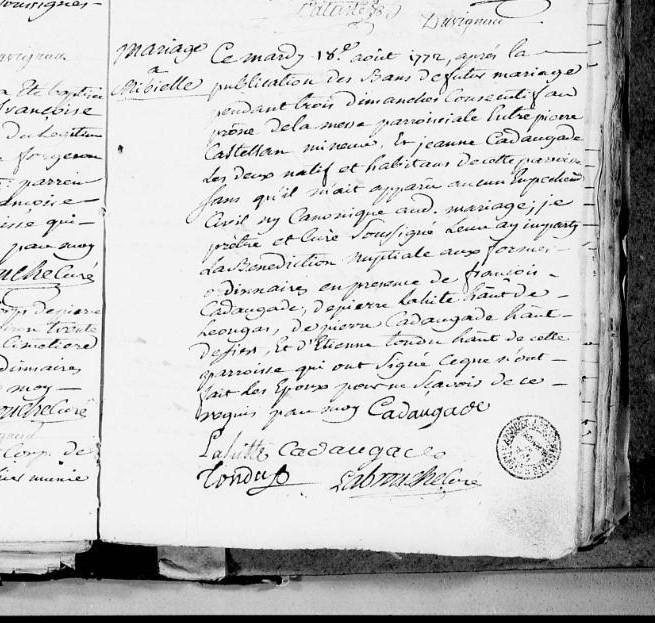 Duvignau
mariage
a
Mibielle
Ce mardy 18e. août 1772, après la
publication des Bans de futur mariage
pendant trois dimanches Consecutifs au
prône de la messe parroissiale Entre pierre
Castellan mineur, Et jeanne Cadaugade
les deux natifs et habitans de cette parroisse
sans qu'il m'ait apparu aucun Empechem
Civil ny Canonique aud. mariage; je
prêtre et Curé soussigné leur ay imparty
la Benediction nuptiale aux formes
ordinnaires en presence de françois
Cadaugade, de pierre Lahite hânt de
Leongas, de pierre Cadaugade hânt
de et d'Etienne tondu hânt de cette
parroisse qui ont signé ce que n'ont
fait les Epoux pour ne sçavoir de ce
requis par moy Cadaugade
Lahitte Cadaugade
Tondu Labrouche Curé
françoise
forgeron
: parrein
isse qui
par moy
uche Curé
Cimetiere
dinnaires
moy
ouche Curé
Corps de
munie